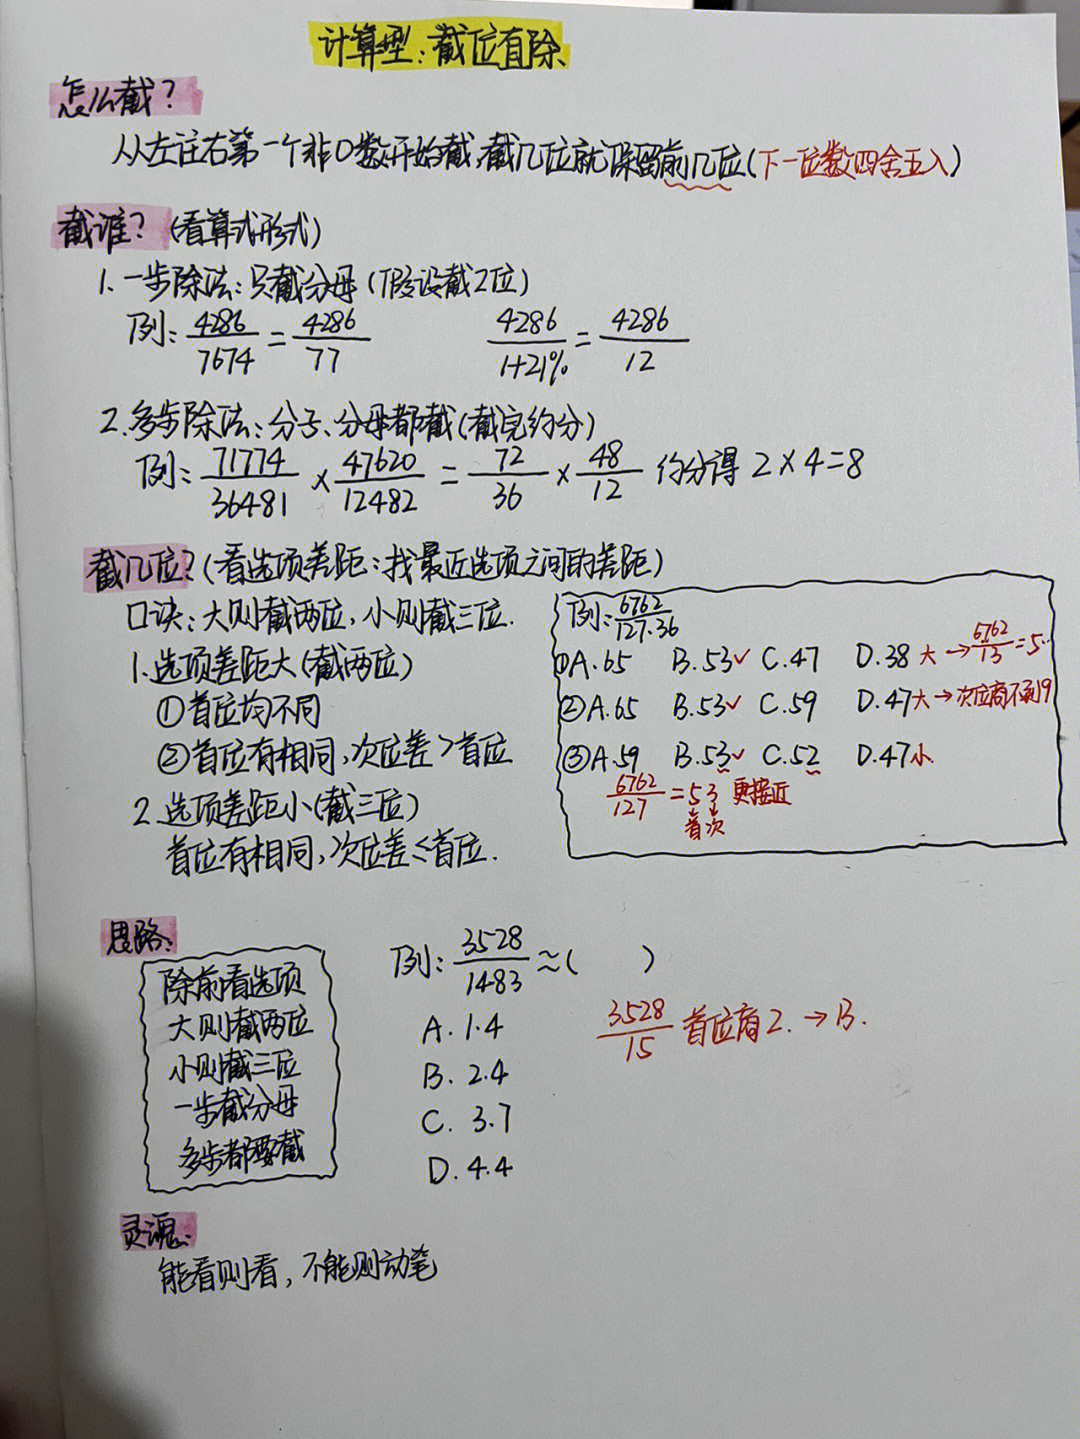 计算型:截位直除
怎么截?
从左往右第一个非0数开始截,截几位就保留前几位(下一位数四舍五入)
截谁?(看算式形式)
1.一步除法:只截分母(假设截2位)
例:4286/7674=4286/77 4286/1+21%=4286/12
2.多步除法:分子、分母都截(截完约分)
例:71774/36481×47620/12482=72/36×48/12 约分得2×4=8
截几位?(看选项差距:找最近选项之间的差距)
口诀:大则截两位,小则截三位.
1.选项差距大(截两位)
①首位均不同
②首位有相同,次位差>首位
2.选项差距小(截三位)
首位有相同,次位差≤首位.
例:6762/127.36
①A.65 B.53✓ C.47 D.38 大→6762/13=5.
②A.65 B.53✓ C.59 D.47 大→次位商不到9
③A.59 B.53✓ C.52 D.47 小.
6762/127=53 更接近
首次
思路:
除前看选项
大则截两位
小则截三位
一步截分母
多步都要截
例:3528/1483≈( )
A.1.4
B.2.4
C.3.7
D.4.4
3528/15 首位商2.→B.
灵魂:
能看则看,不能则动笔